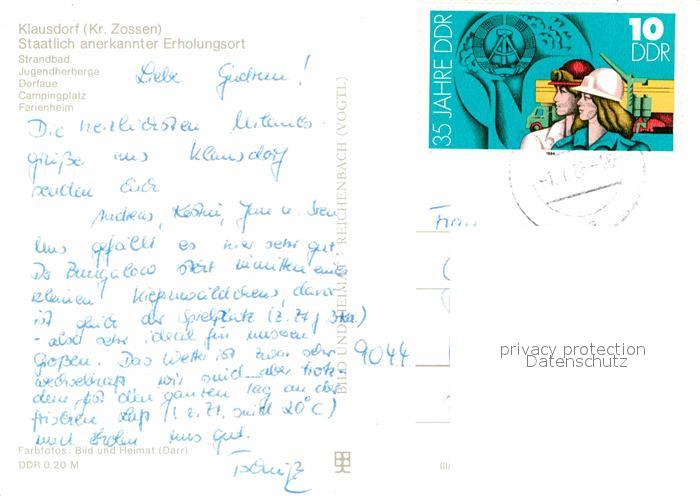 Klausdorf (Kr. Zossen)
Staatlich anerkannter Erholungsort
Strandbad
Jugendherberge
Dorfaue
Campingplatz
Ferienheim
Liebe Gudrun!
Die herzlichsten Urlaubs-
grüße aus Klausdorf
senden Euch
Andreas, Jan u.
Uns gefällt es hier sehr gut
Der Bungalow steht inmitten eines
kleinen Kiefernwäldchens, davor
ist gleich der Spielplatz (z. Zt.
- also sehr ideal für unseren
Großen. Das Wetter ist zwar sehr
wechselhaft, wir sind aber trotz-
dem den ganzen Tag an der
frischen Luft (z. Zt. sind 20°C)
und erholen uns gut.
Farbfotos: Bild und Heimat (Darr)
DDR 0,20 M
BILD UND HEIMAT · REICHENBACH (VOGTL)
35 JAHRE DDR
10
DDR
1984
Frau
9044
III/
privacy protection
Datenschutz